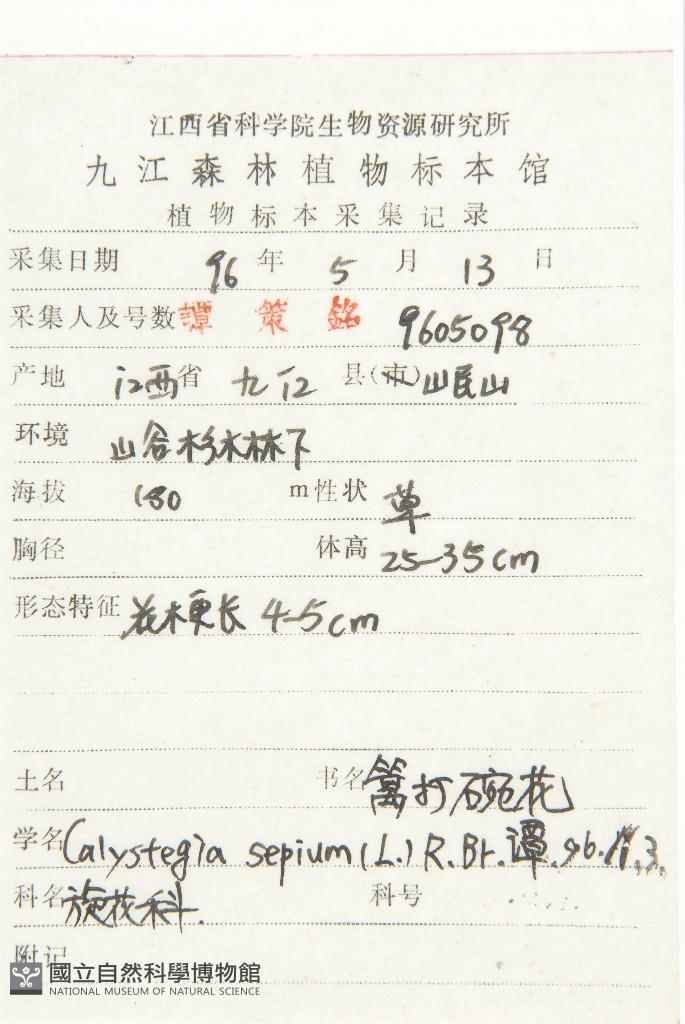 江西省科学院生物资源研究所
九江森林植物标本馆
植物标本采集记录
采集日期 96 年 5 月 13 日
采集人及号数 譚策銘 9605098
产地 江西省 九江 县(市) 岷山
环境 山谷杉木林下
海拔 180 m 性状 草
胸径 体高 25-35cm
形态特征 花梗长 4-5cm
土名 书名 篱打碗花
学名 Calystegia sepium (L.) R.Br. 谭.96.11.3.
科名 旋花科. 科号
附记
國立自然科學博物館
NATIONAL MUSEUM OF NATURAL SCIENCE